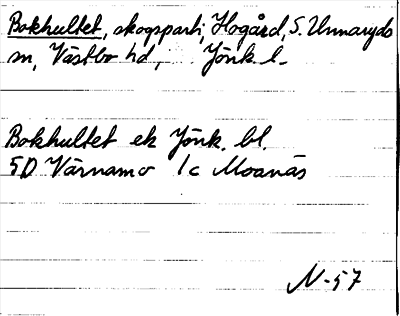 Bokhultet, skogsparti, Hogård, S. Unnaryds
sn, Västbo hd, Jönk. l.
Bokhultet ek Jönk. bl.
5D Värnamo 1c Moanäs
N-57